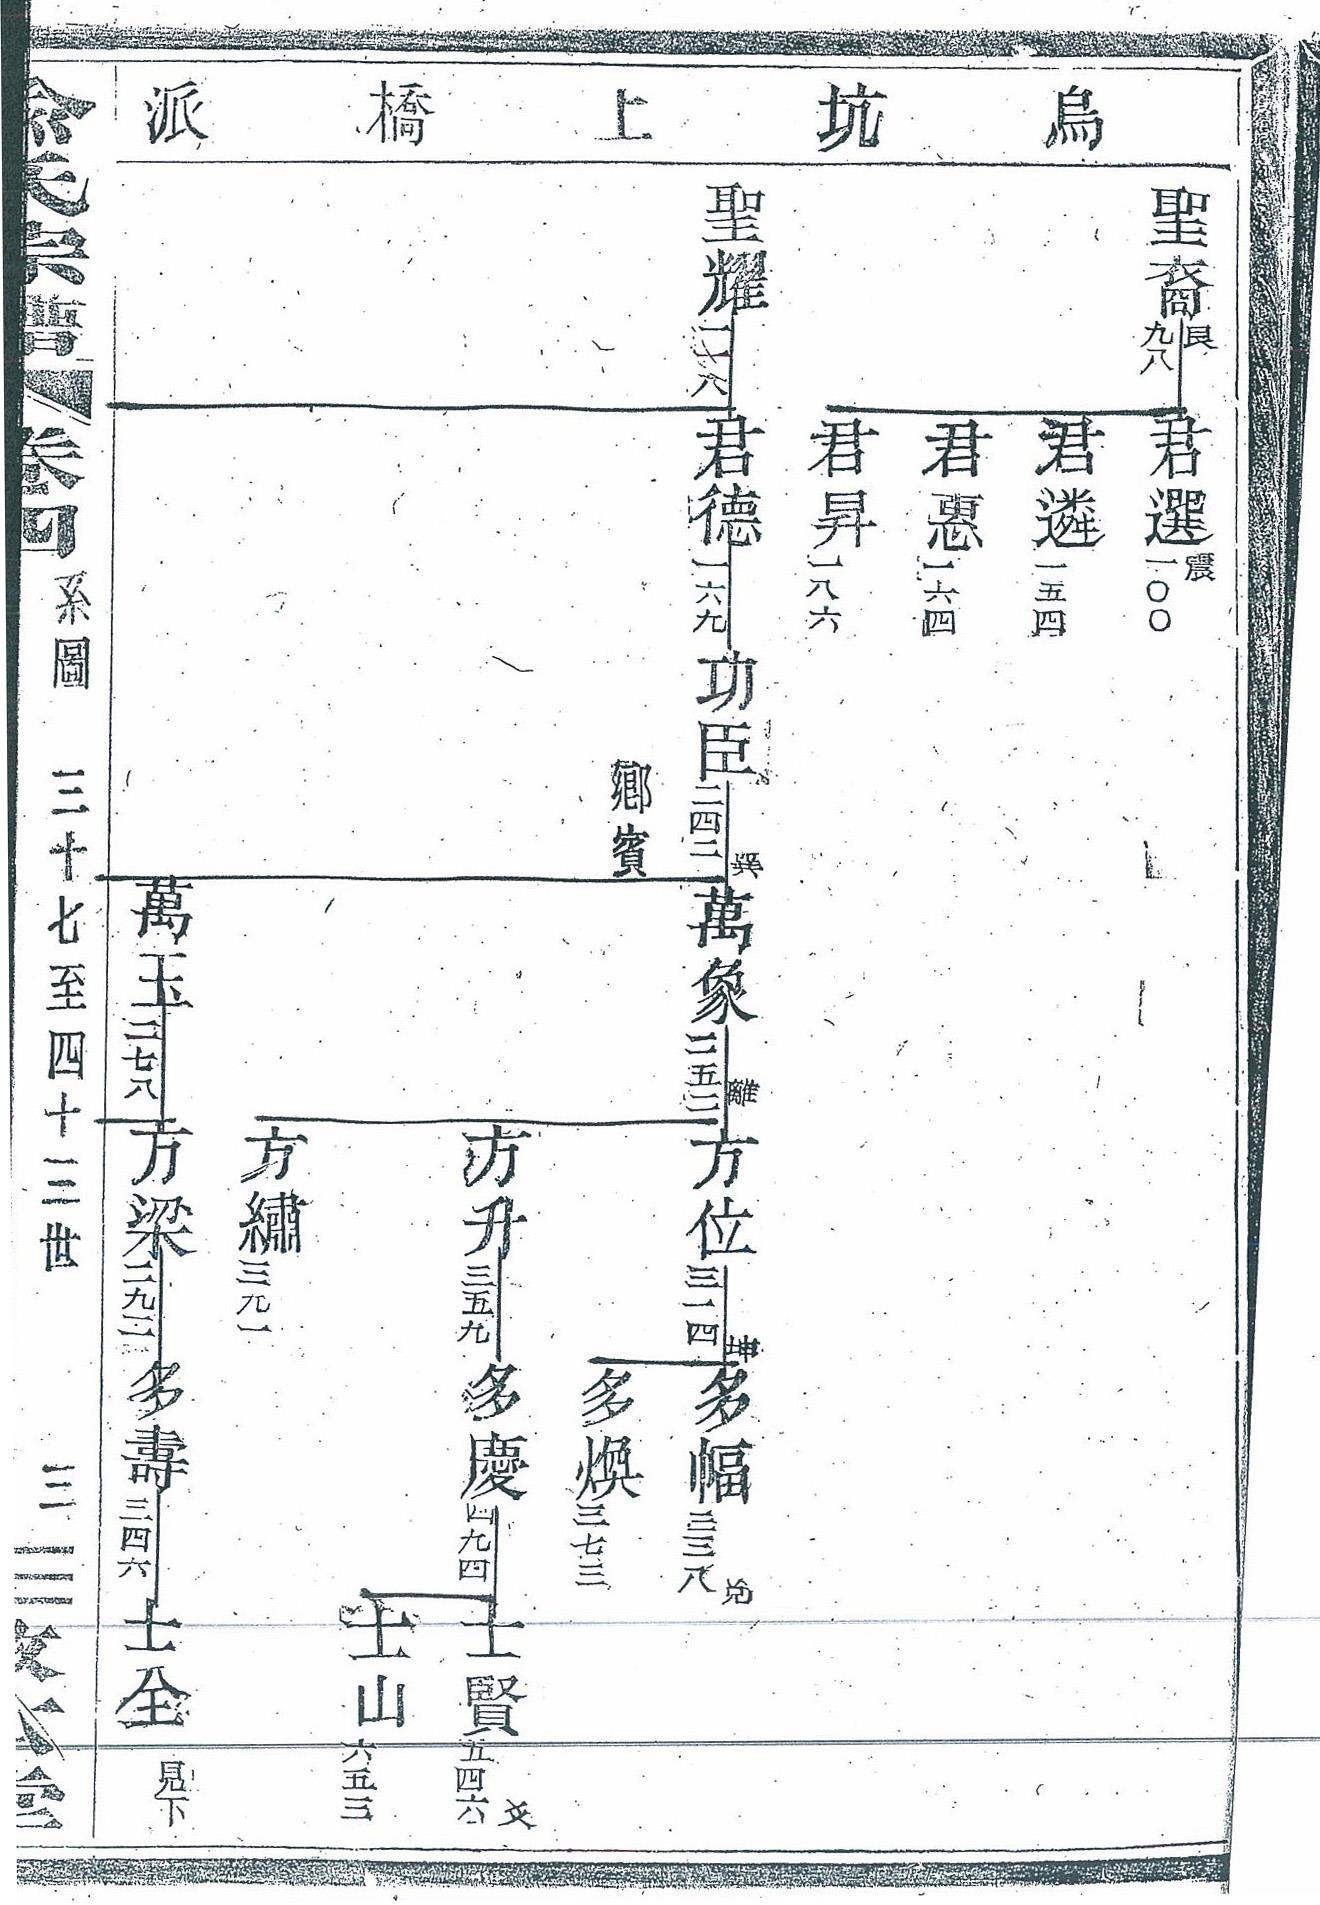 烏坑上橋派
聖裔
艮
九八
君選
震
一〇〇
君遴
一五四
君惪
一六四
君昇
一八六
聖耀
君德
一六九
功臣
二四二
鄉賓
萬象
二五二
離
方位
三一四
坤
多幅
三三八
多煥
三七三
方升
三五九
多慶
四九四
士賢
五四六
爻
士山
六五三
方繡
三九一
萬玉
二七八
方梁
二九二
多壽
三四六
士全
見下
余氏宗譜
卷四
系圖
三十七至四十三世
三